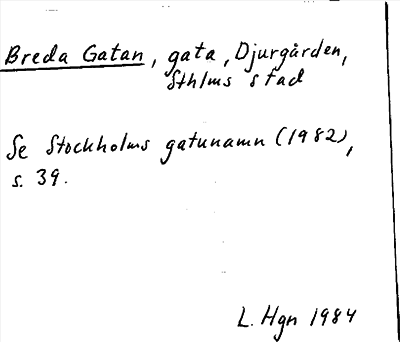 Breda Gatan, gata, Djurgården,
Sthlms stad
Se Stockholms gatunamn (1982),
s. 39.
L. Hgn 1984